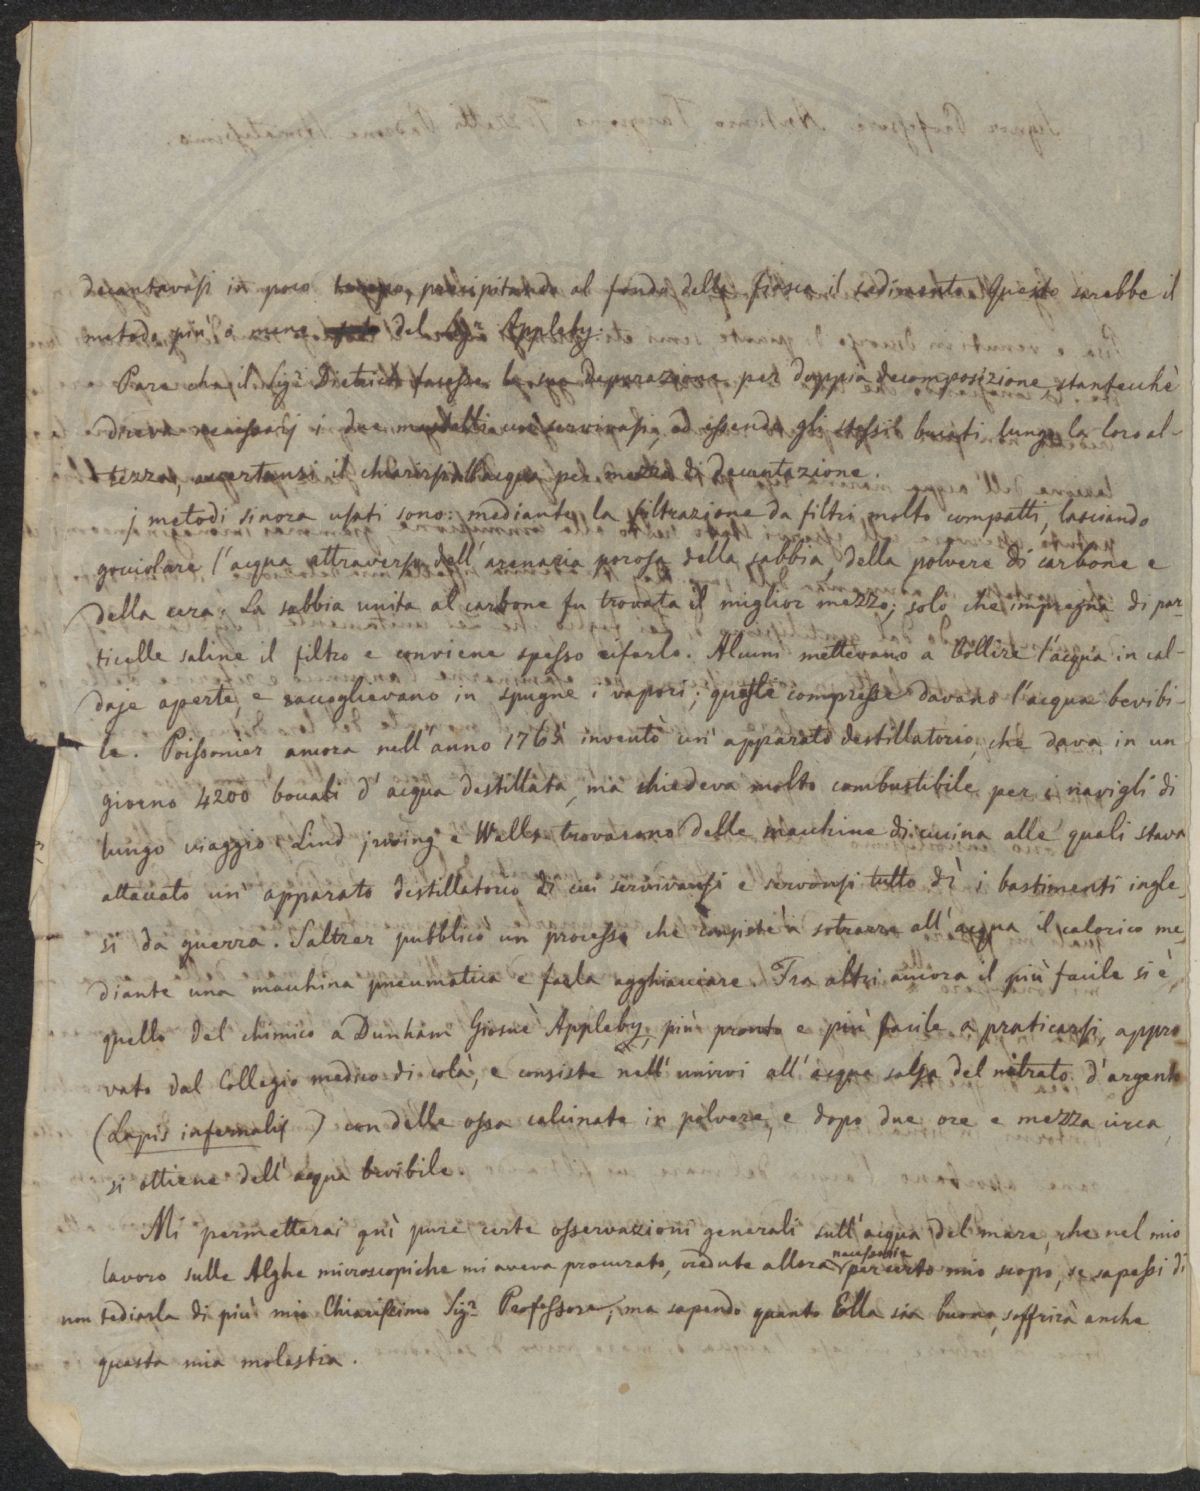 decantavasi in poco tempo, precipitando al fondo della fiasca il sedimento. Questo sarebbe il
metodo più o meno del Sigr Appleby.
Pare che il Sigr Dietrich facesse la sua depurazione per doppia decomposizione stantechè
diceva necessarj i due mastelli servivasi, ed essendo gli stessi bucati lungo la loro al-
tezza, accertansi il chiarirsi dell'acqua per mezzo di decantazione.
j metodi sinora usati sono: mediante la filtrazione da filtri molto compatti, lasciando
gocciolare l'acqua attraverso dell'arenaria porosa della sabbia, della polvere di carbone e
della cera. La sabbia unita al carbone fu trovata il miglior mezzo; solo che impregna di par-
ticelle saline il filtro e conviene spesso rifarlo. Alcuni mettevano a bollire l'acqua in cal-
daje aperte, e raccoglievano in spugne i vapori; queste compresse davano l'acqua bevibi-
le. Poissonier ancora nell'anno 1763 inventò un' apparato destillatorio, che dava in un
giorno 4200 boccali d'acqua destillata, ma chiedeva molto combustibile per i navigli di
lungo viaggio. Lind jrwing e Wells trovarono delle macchine di cucina alle quali stava
attaccato un' apparato distillatorio di cui servivansi e servonsi tutto dì i bastimenti ingle-
si da guerra. Saltzer pubblicò un processo che consiste a sotrarre all'acqua il calorico me-
diante una macchina pneumatica e farla agghiacciare. Tra altri ancora il più facile si è
quello del chimico a Dunham Giosuè Appleby, più pronto e più facile a praticarsi, appro
vato dal Collegio medico di colà, e consiste nell'unirvi all'acqua salsa del nitrato d'argento
(Lapis infernalis) con delle ossa calcinate in polvere, e dopo due ore e mezza circa,
si ottiene dell'acqua bevibile.
Mi permetterai quì pure certe osservazioni generali sull'acqua del mare, che nel mio
lavoro sulle Alghe microscopiche mi aveva procurato, vedute allora necessarie per certo mio scopo, se sapessi di
non tediarla di più mio Chiarissimo Sigr Professore, ma sapendo quanto Ella sia buona, soffrirà anche
questa mia molestia.